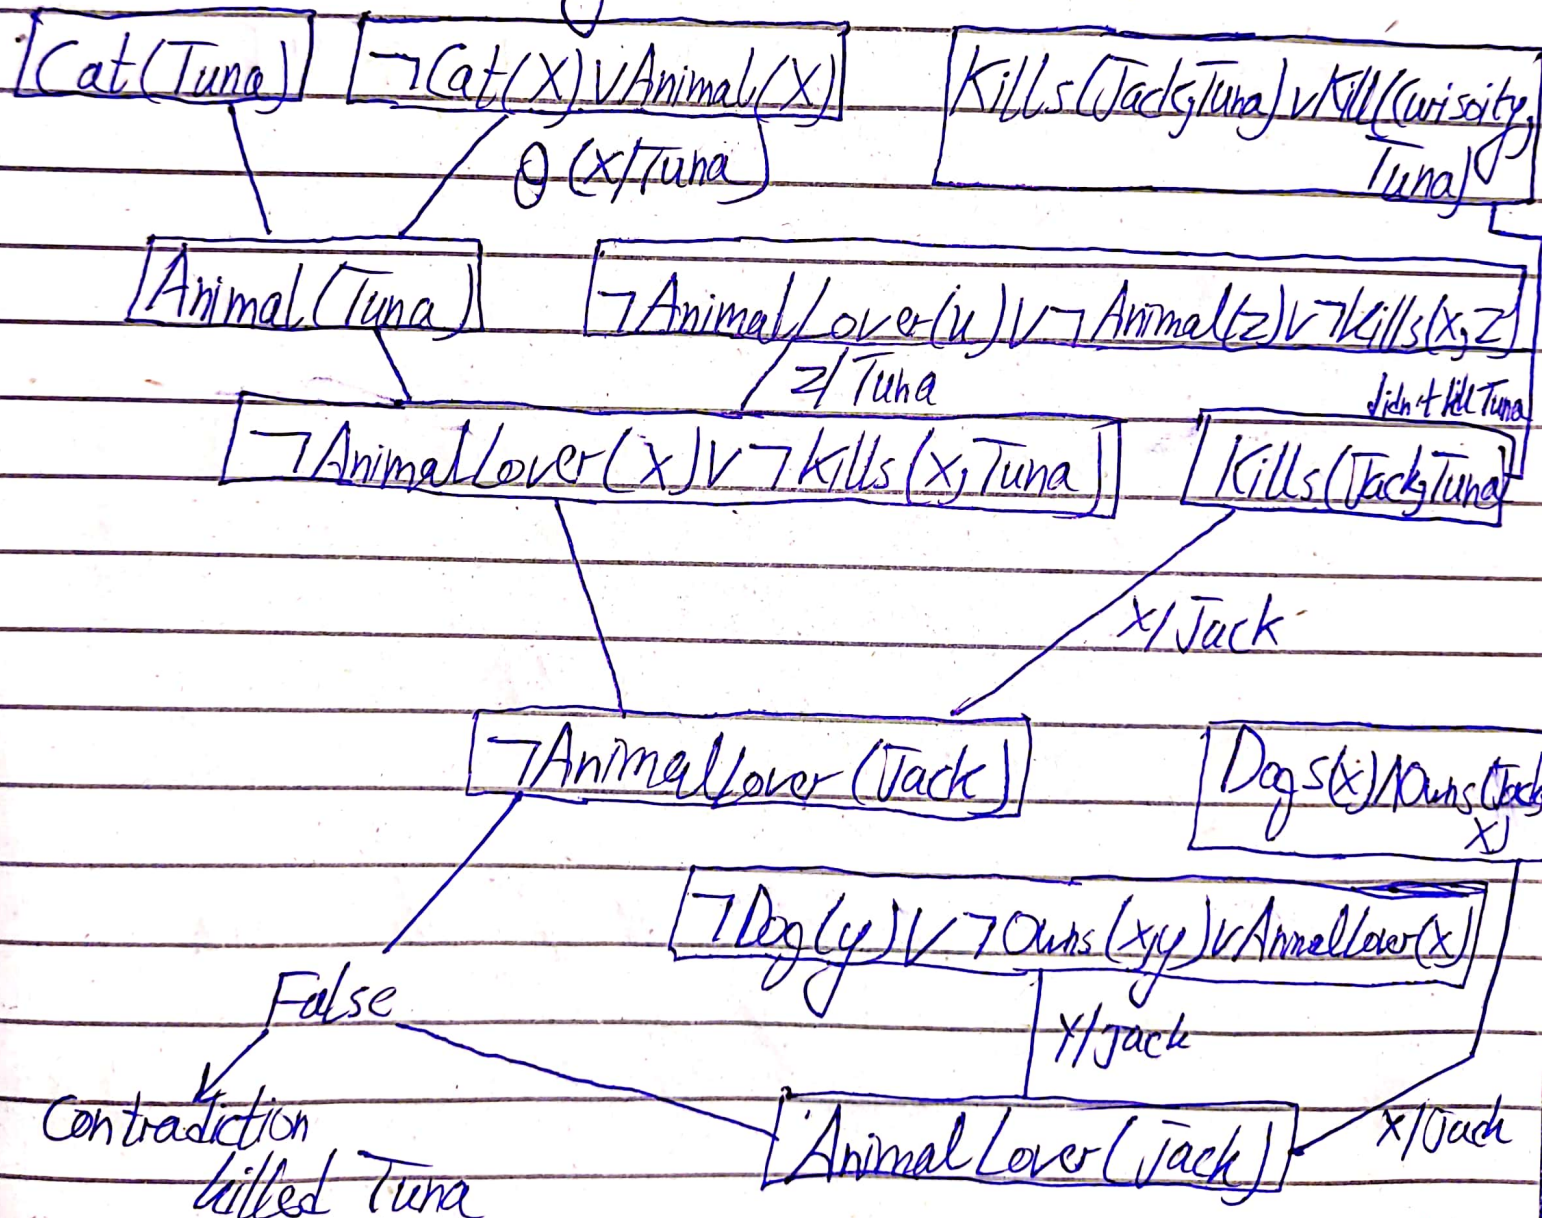 Cat(Tuna)
¬Cat(X)∨Animal(X)
Kills(Jack,Tuna)∨Kill(Curisoity,
Tuna)
θ(X/Tuna)
Animal(Tuna)
¬AnimalLover(u)∨¬Animal(z)∨¬Kills(x,z)
z/Tuna
didn't kill Tuna
¬AnimalLover(X)∨¬Kills(x,Tuna)
Kills(Jack,Tuna)
X/Jack
¬AnimalLover(Jack)
Dogs(x)∧Owns(Jack
X)
¬Dog(y)∨¬Owns(x,y)∨AnimalLover(x)
False
Y/Jack
Contradiction
X/Jack
AnimalLover(Jack)
killed Tuna